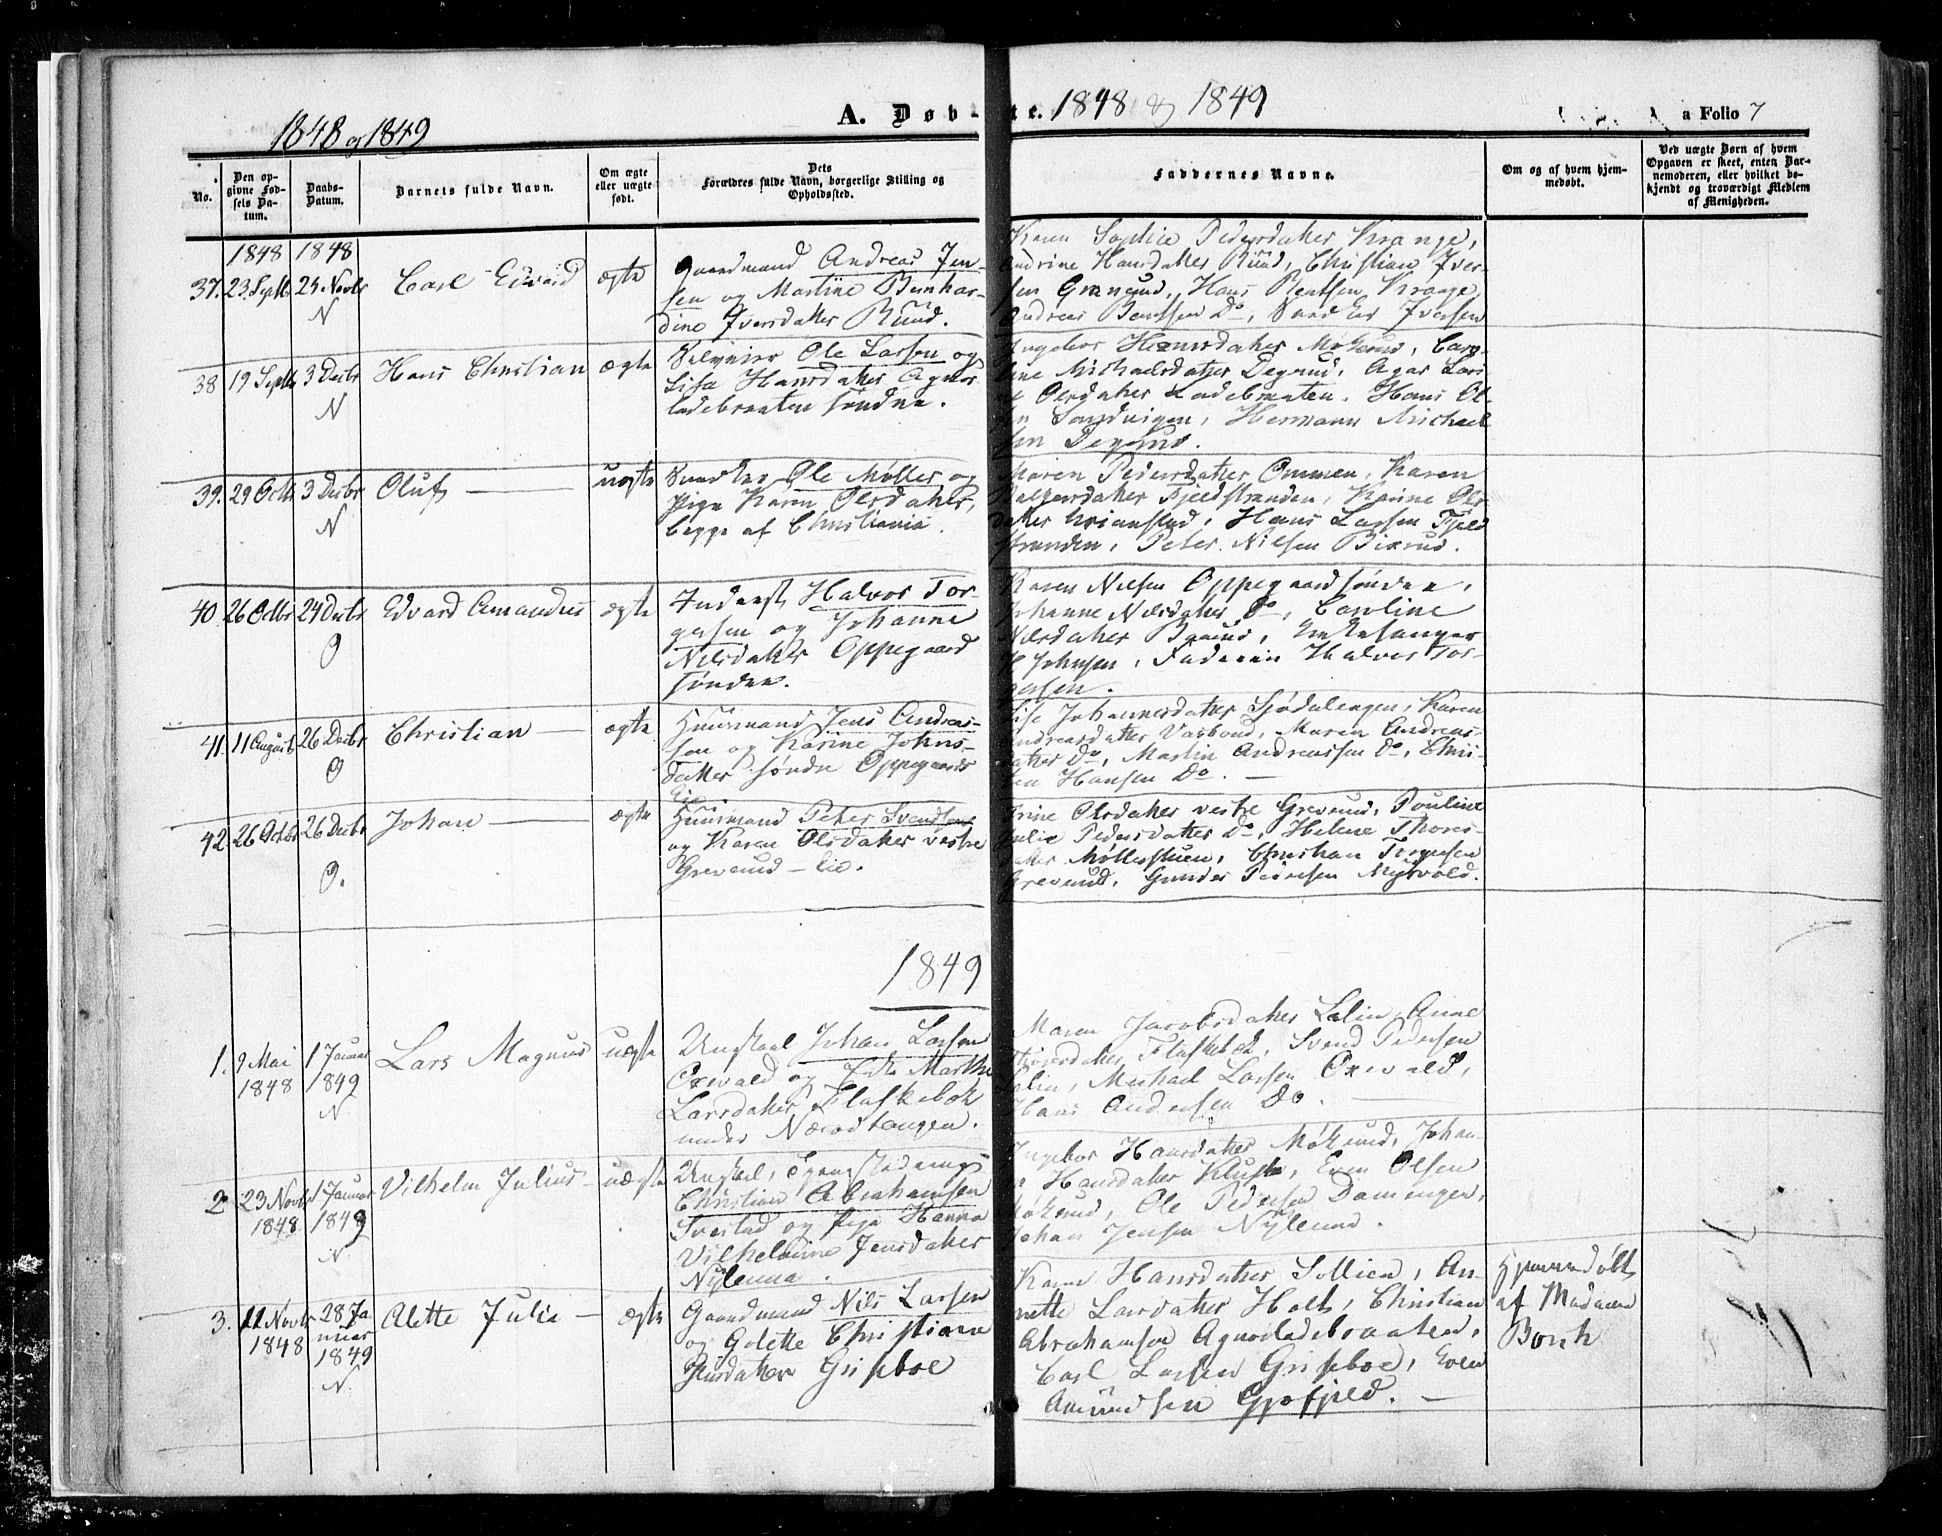 1848 og 1849
A. Døb-
te. 1848 & 1849
a Folio 7
No.
Den op-
givne Fød-
sels Da-
tum.
Daabs-
Datum.
Barnets fulde Navn.
Om ægte
eller uægte
født.
Dets
Forældres fulde Navn, borgerlige Stilling og
Opholdssted.
Faddernes Navne.
Om og af hvem hjem-
medøbt.
Ved uægte Børn af hvem
Opgaven er skeet, enten Bar-
nemoderen, eller hvilket be-
kjendt og troværdigt Medlem
af Menigheden.
1848 1848
37. 23 Septbr
N
Carl Edvard
ægte
Gaardmand Andreas Jen-
sen og Martine Bernhar-
dine Iversdatter Ruud.
Karen Sophie Pedersdatter Krange,
Andrine Hansdatter Ruud, Christian Iver-
sen Granerud, Hans Bentsen Krange
Andreas Bentsen Do, Iversen
38 19 Septbr 3 Decbr
N
Hans Christian
ægte
Selveier Ole Larsen og
Lisa Hansdatter Agnor
ladebraaten søndre.
Ingebor Møkerud, Caro-
line Michaelsdatter Degrud,
Olsdatter Ladebraaten. Hans Ol-
sen Sandvigen, Hermann Michael
sen Degrud.
39. 29 Octbr 3 Decbr
N
Oluf
uægte
Ole Møller og
Pige Karen Olsdatter,
begge af Christiania.
Maren Pedersdatter Ommen, Karen
Fjeldstranden, Karine Ols-
datter Hans Larsen Fjeld
stranden, Peter Nilsen
40 26 Octbr 24 Decbr
O
Edvard Amandus
ægte
Inderst Halvor Tor-
gersen og Johanne
Nilsdatter Oppegaard
søndre.
Karen Nilsen Oppegaard søndre,
Johanne Nilsdatter Do, Caroline
Nilsdatter
Johnsen, Faderen Halvor Tor-
gersen.
41. 11 August 26 Decbr
O
Christian
ægte
Huusmand Jens Andreas-
sen og Karine Johns-
datter søndre Oppegaards
Eie
Lise Johannesdatter Sjødalengen, Karen
Andreasdatter Maren Andreas-
datter Do, Martin Andreassen Do, Chris-
Hansen Do.
42. 26 Octbr 26 Decbr
O.
Johan
ægte
Huusmand Peter Svendsen
og Karen Olsdatter vestre
Greverud - Eie.
Trine Olsdatter vestre Greverud, Pouline
Julie Pedersdatter Do, Helene Thores-
datter Møllerstuen, Christian
Greverud, Gunder Pedersen Myrvold.
1849
1. 9 Mai 1 Januar
1848 1849
N
Lars Magnus
uægte
Ungkarl Johan Larsen
Oxevald og Enke Marthe
Larsdatter Flaskebek
under Næsodtangen.
Maren Jacobsdatter Anne
Flaskebek, Svend Pedersen
Michael Larsen Oxevald,
Hans Andersen Do.
2 23 Novbr 1 Januar
1848 1849
N
Vilhelm Julius
uægte
Ungkarl,
Christian Abrahamsen
Svestad og Pige Hanna
Vilhelmine Jensdatter
Nylenna.
Ingebor Hansdatter Møkerud, Johan-
Hansdatter Even Olsen
Møkerud, Ole Pedersen Damengen,
Johan Jensen Nylenna.
3. 11 Novbr 28 Ja
1848 nuar
1849
N.
Alette Julie
ægte
Gaardmand Nils Larsen
og Adette Christiane
Gripboe
Karen Hansdatter Sollien, An-
nette Larsdatter Holt, Christian
Abrahamsen Agnorladebraaten,
Carl Larsen Gripboe, Even
Amundsen Gjøfjeld.
Hjemmedøbt
af Madame
Bonk